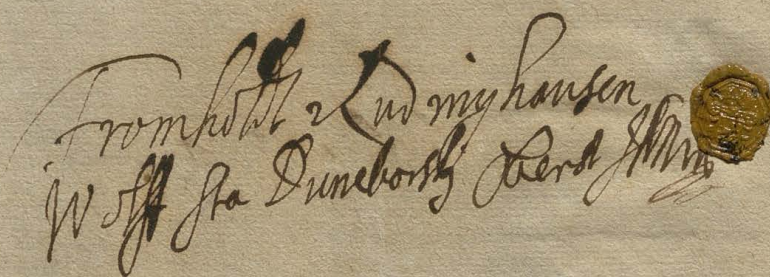 Fromholdt Ludinghausen
Wolff sta Duneborskj Oberst